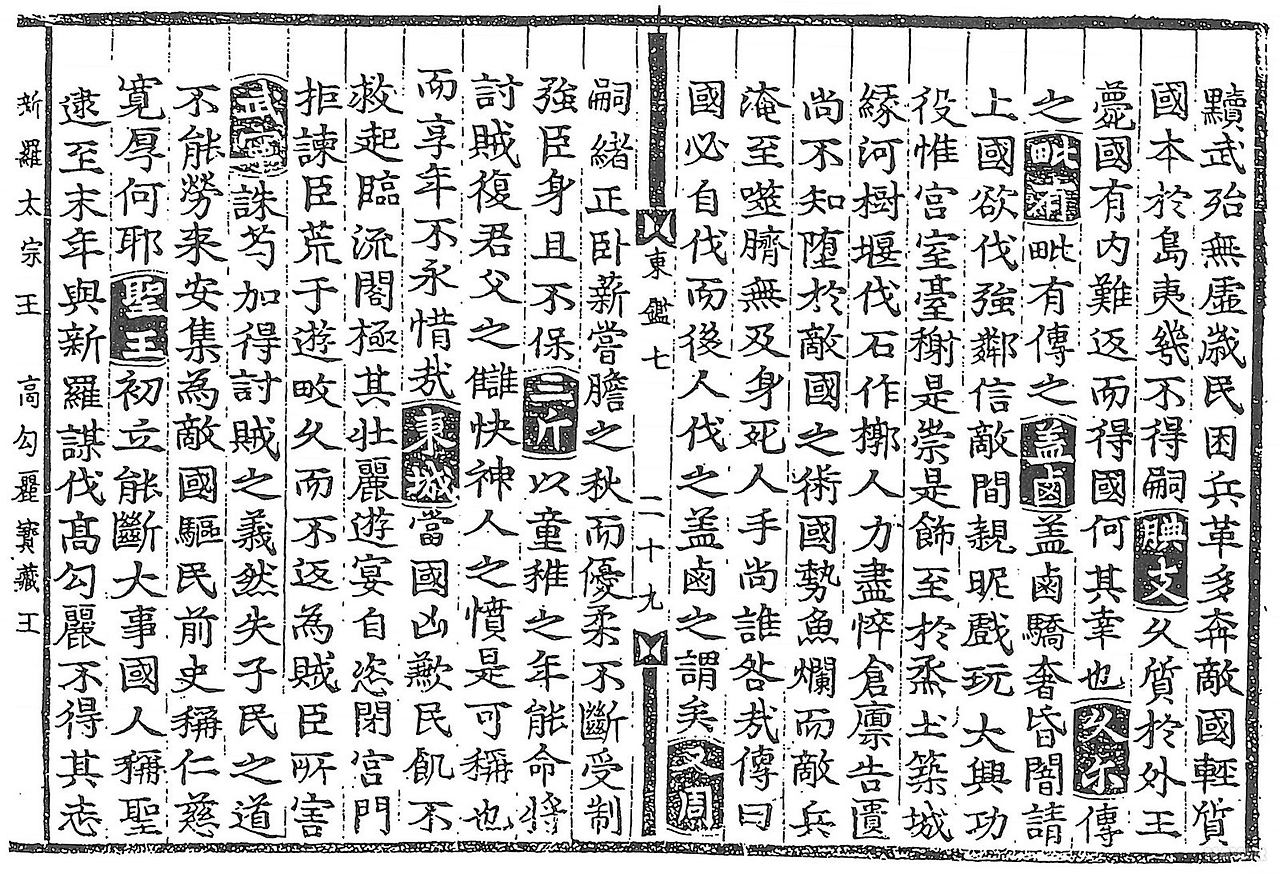 黷武殆無虛歲民困兵革多奔敵國輕質
國本於島夷幾不得嗣腆支久質於外王
薨國有內難返而得國何其幸也久尒傳
之毗有毗有傳之盖鹵盖鹵驕奢昏闇請
上國欲伐強鄰信敵間親昵戲玩大興功
役惟宮室臺榭是崇是飾至於烝土築城
緣河樹堰伐石作槨人力盡悴倉廩告匱
尚不知墮於敵國之術國勢魚爛而敵兵
淹至噬臍無及身死人手尚誰咎㢤傳曰
國必自伐而後人伐之盖鹵之謂矣文周
東鑑七 二十九
嗣緒正卧薪嘗膽之秋而優柔不斷受制
強臣身且不保三斤以童稚之年能命將
討賊復君父之讎快神人之憤是可稱也
而享年不永惜㢤東城當國凶歉民飢不
救起臨流閣極其壯麗遊宴自恣閉宮門
拒諫臣荒于遊畋久而不返為賊臣所害
武寧誅芍加得討賊之義然失子民之道
不能勞来安集為敵國驅民前史稱仁慈
寛厚何耶聖王初立能斷大事國人稱聖
逮至末年與新羅謀伐髙勾麗不得其志
新羅太宗王 高勾麗寶藏王